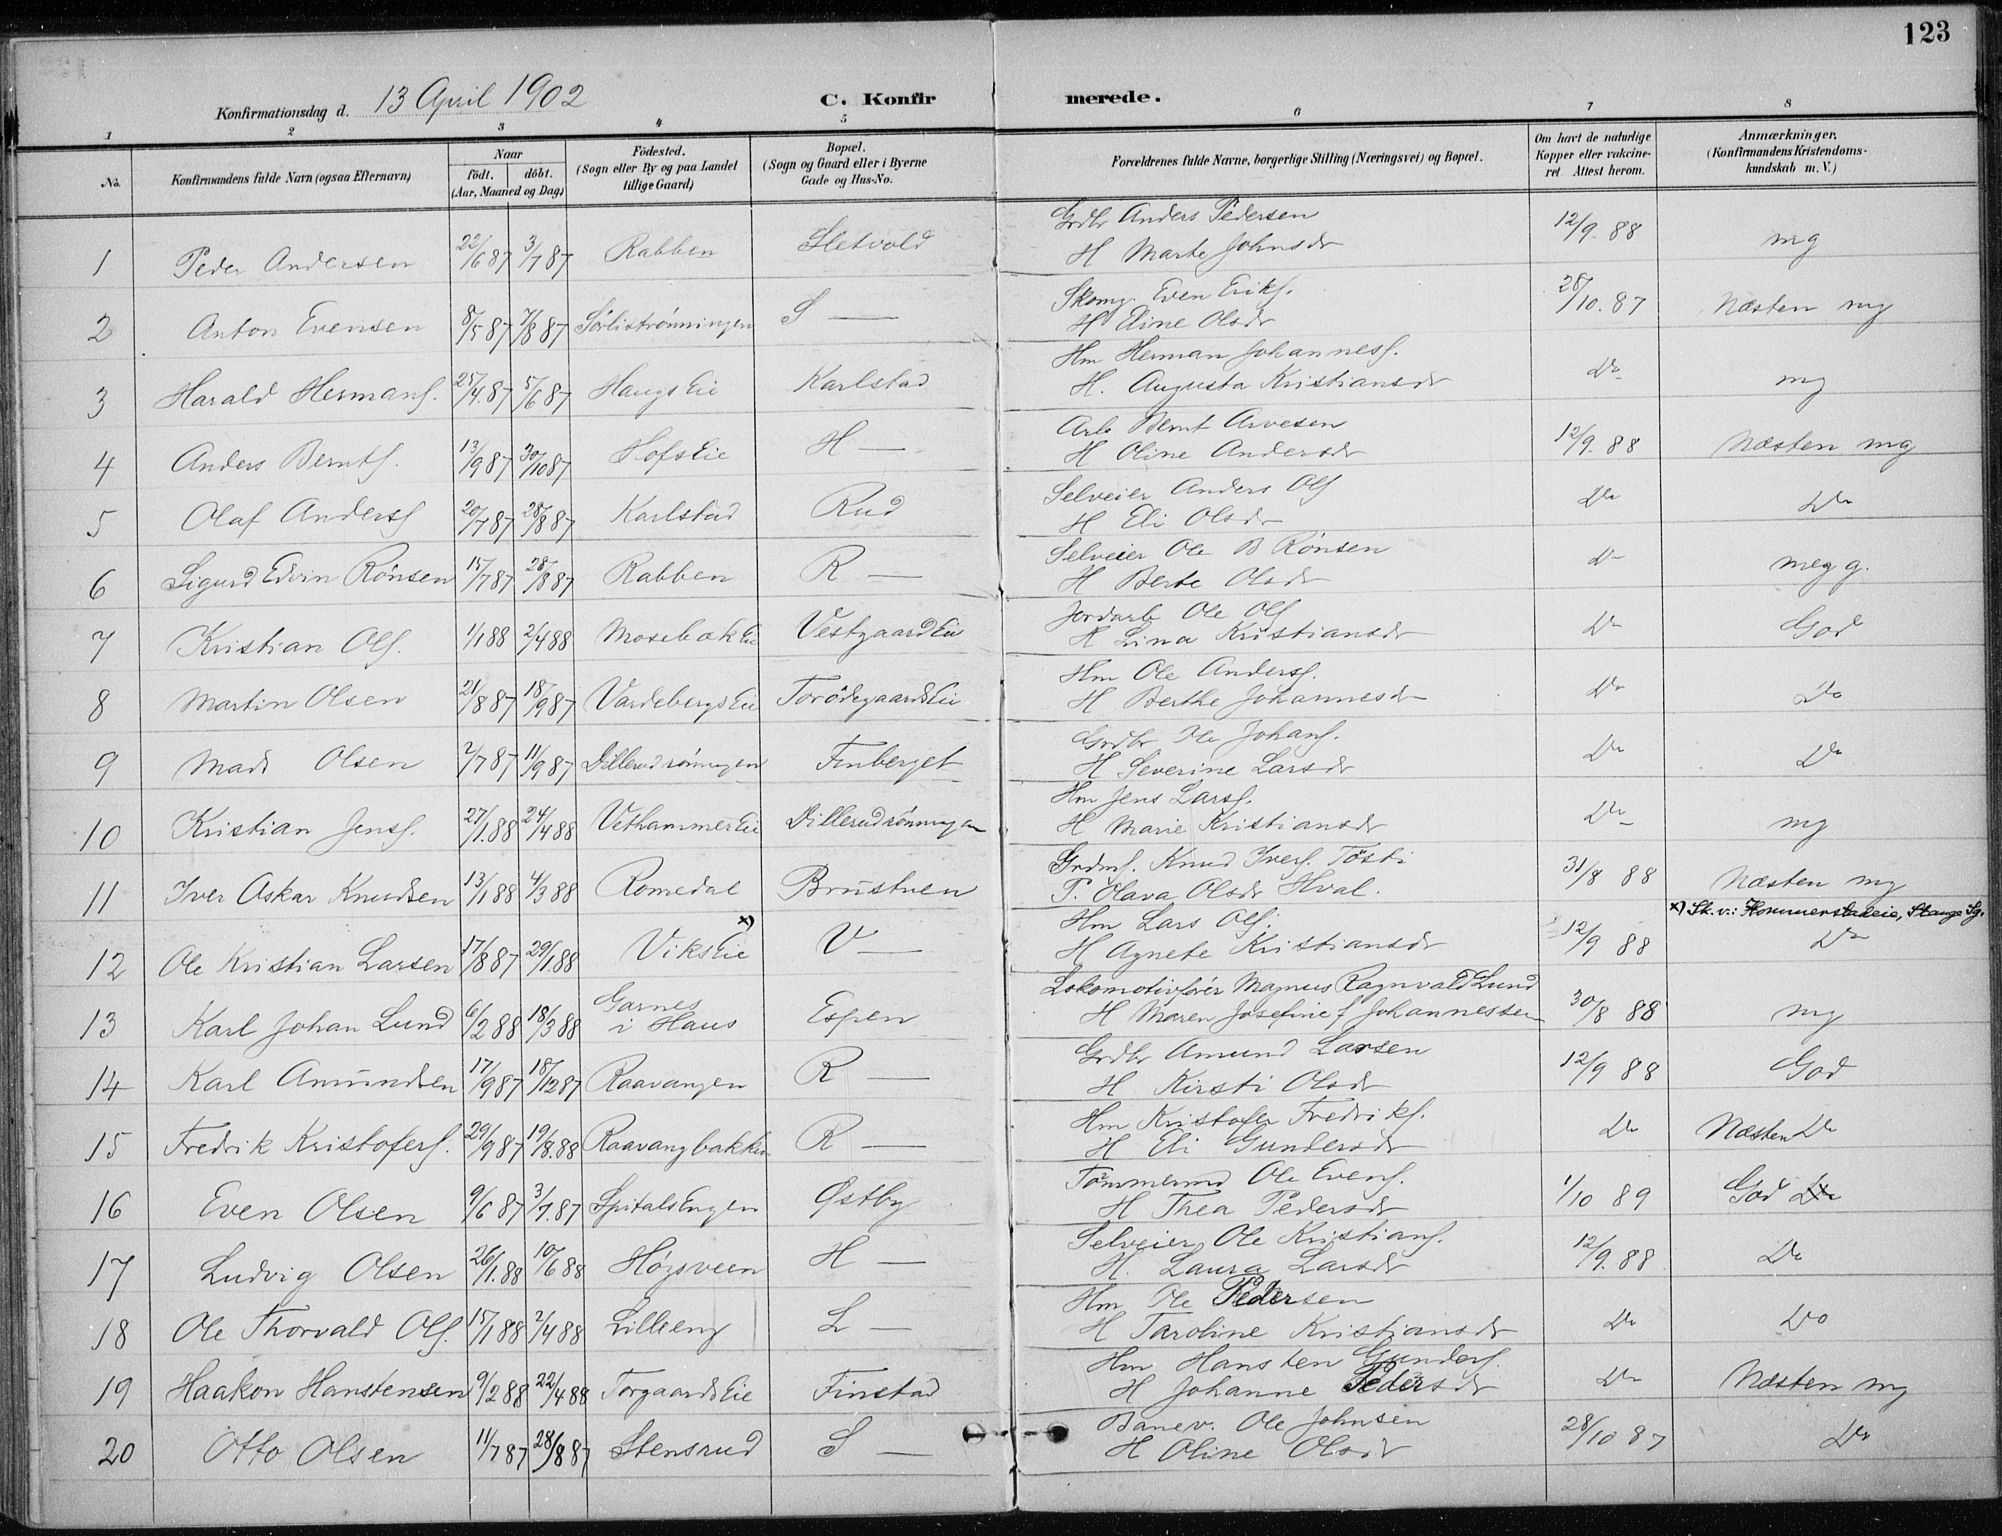 123
Konfirmationsdag d. 13 April 1902 C. Konfirmerede.
1 2 3 4 5 6 7 8
No. Konfirmandens fulde Navn (ogsaa Efternavn) Naar født. døbt. (Aar, Maaned og Dag) Fødested. (Sogn eller By og paa Landet tillige Gaard) Bopæl. (Sogn og Gaard eller i Byerne Gade og Hus-No. Forældrenes fulde Navne, borgerlige Stilling (Næringsvei) og Bopæl. Om havt de naturlige Kopper eller vakcineret. Attest herom. Anmærkninger. (Konfirmandens Kristendomskundskab m. V.)
Grdbr Anders Pedersen
1 Peder Andersen 22/6 87 3/7 87 Rabben Sletvold H Marte Johnsdr 12/9. 88 mg
Skomg. Even Eriks.
2 Anton Evensen 8/5 87 7/8 87 Sørlistrønningen S — H Eline Olsdr 28/10. 87 Næsten mg
Hm Herman Johanness.
3 Harald Hermans. 25/4. 87 5/6 87 Haugs Eie Karlstad H. Augusta Kristiansdr Do mg
Arb Bernt Arvesen
4 Anders Bernts. 13/9 87 30/10 87 Hofs Eie H — H Oline Andersdr 12/9. 88 Næsten mg
Selveier Anders Ols
5 Olaf Anders. 20/7 87 28/8 87 Karlstad Rud H Eli Olsdr Do Do
Selveier Ole B Rønsen
6 Sigurd Edvin Rønsen 15/7 87 28/8 87 Rabben R — H Berte Olsdr Do meg g.
Jordarb Ole Ols
7 Kristian Ols. 1/1 88 2/4 88 Mosebæk Eie Vestgaard Eie H Lina Kristiansdr Do God
Hm Ole Anders.
8 Martin Olsen 21/8 87 18/9 87 Vardebergs Eie Torødegaards Eie H Berthe Johannesdr Do Do
Grdbr Ole Johans.
9 Mads Olsen 2/7 87 11/9 87 Dillerudrønningen Finberget H Severine Larsdr Do Do
Hm Jens Lars.
10 Kristian Jens. 27/1. 88 24/4 88 Vethammer Eie Dillerudrønningen H Marie Kristiansdr Do mg
Grdms. Knud Ivers. Tøsti
11 Iver Oskar Knudsen 13/1 88 4/3 88 Romedal Brustuen P. Olava Olsdr Hval. 31/8 88 Næsten mg
Hm Lars Ols. x) Sk. v.: Hommerstadeie, Stange Sg.
12 Ole Kristian Larsen 17/8 87 29/1. 88 Viks Eie x) V — H Agnete Kristiansdr 12/9 88 Do
Lokomotivfører Magnus Ragnvald Lund
13 Karl Johan Lund 6/2 88 18/3 88 Garnes i Haus Espen H Maren Josefine f Johannessen 30/8 88 mg
Grdbr Amund Larsen
14 Karl Amundsen 17/9 87 18/12 87 Raavangen R — H Kirsti Olsdr 12/9 88 God
Hm Kristofer Fredriks.
15 Fredrik Kristofers. 29/9 87 19/8. 88 Raavangbakken R — H Eli Gundersdr Do Næsten Do
Tømmermd Ole Evens.
16 Even Olsen 9/6 87 3/7. 87 Spitals Engen Østby H Thea Pedersdr 1/10 89 God
Selveier Ole Kristians.
17 Ludvig Olsen 26/1. 88 10/6 88 Høgsveen H — H. Laura Larsdr 12/9. 88 Do
Hm Ole Pedersen
18 Ole Thorvald Ols. 15/1 88 2/4 88 Lilleeng L — H Taroline Kristiansdr Do Do
Hm Hansten Gunders.
19 Haakon Hanstensen 9/2 88 22/4 88 Torgaards Eie Finstad H Johanne Pedersdr Do Næsten mg
Banev. Ole Johnsen
20 Otto Olsen 11/7 87 28/8 87 Stensrud S — H Oline Olsdr 28/10 87 Do